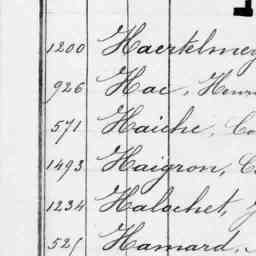 1200 Haertelmey
926 Hae, Henri
571 Haiche, Co
1493 Haigron, C
1234 Halochet, J
521 Hamard,